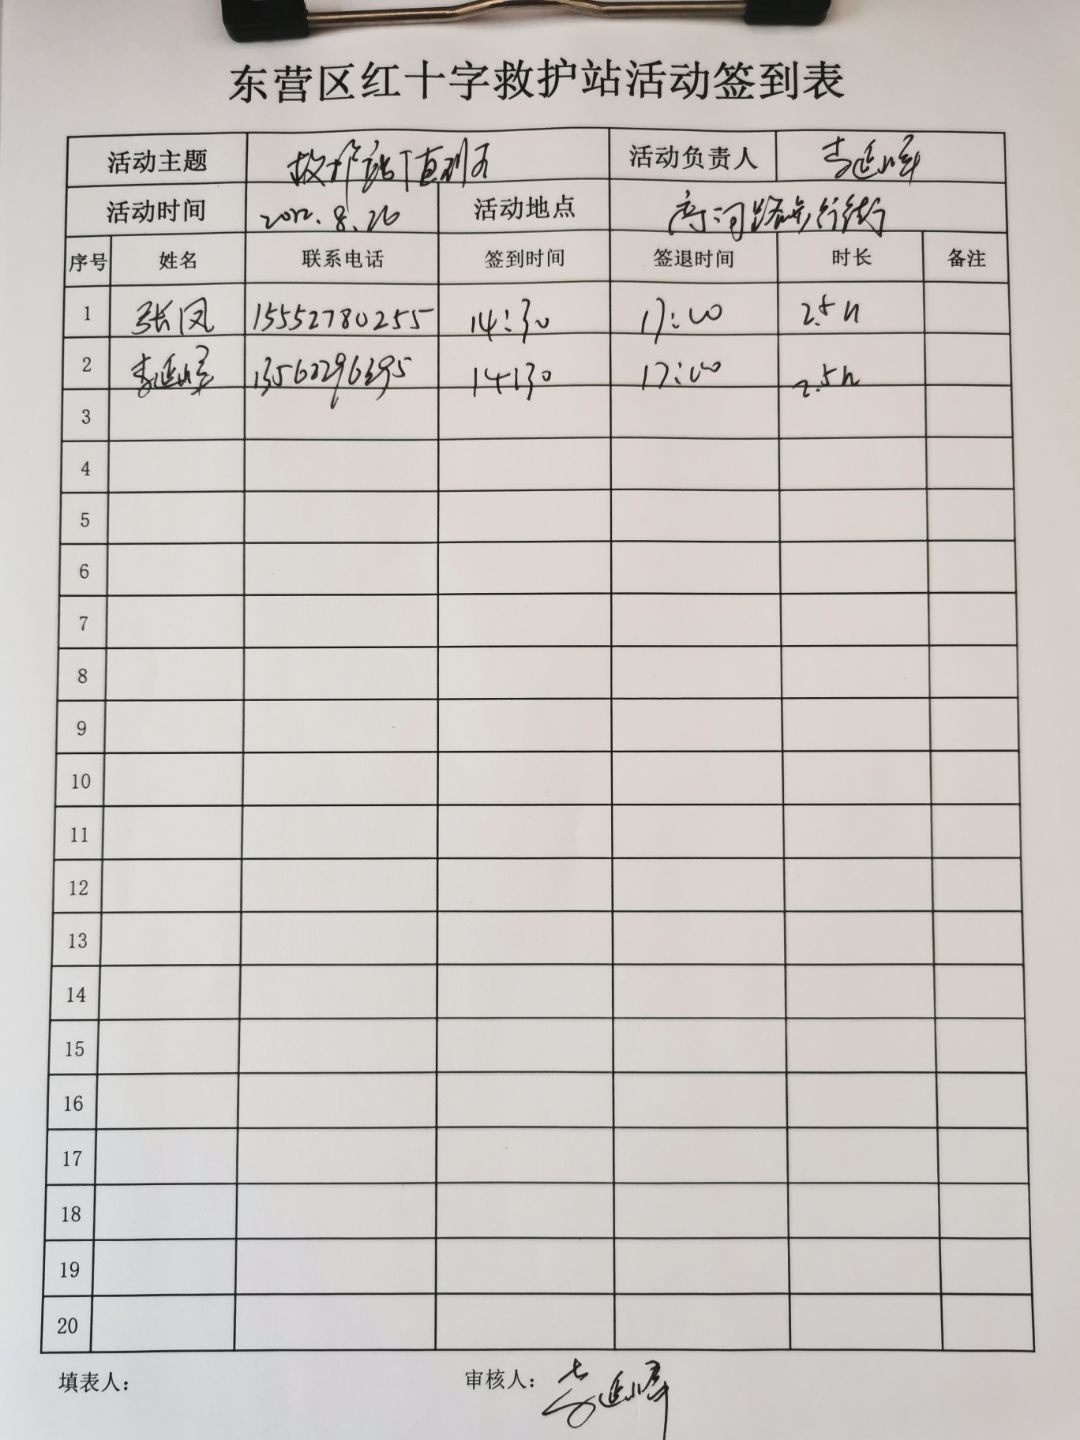 东营区红十字救护站活动签到表
活动主题 救护站值 活动负责人 李延峰
活动时间 2022.8.26 活动地点 路步行街
序号 姓名 联系电话 签到时间 签退时间 时长 备注
1 张凤 15552780255 14:30 17:00 2.5h
2 李延峰 14:30 17:00 2.5h
3
4
5
6
7
8
9
10
11
12
13
14
15
16
17
18
19
20
填表人: 审核人: 李延峰